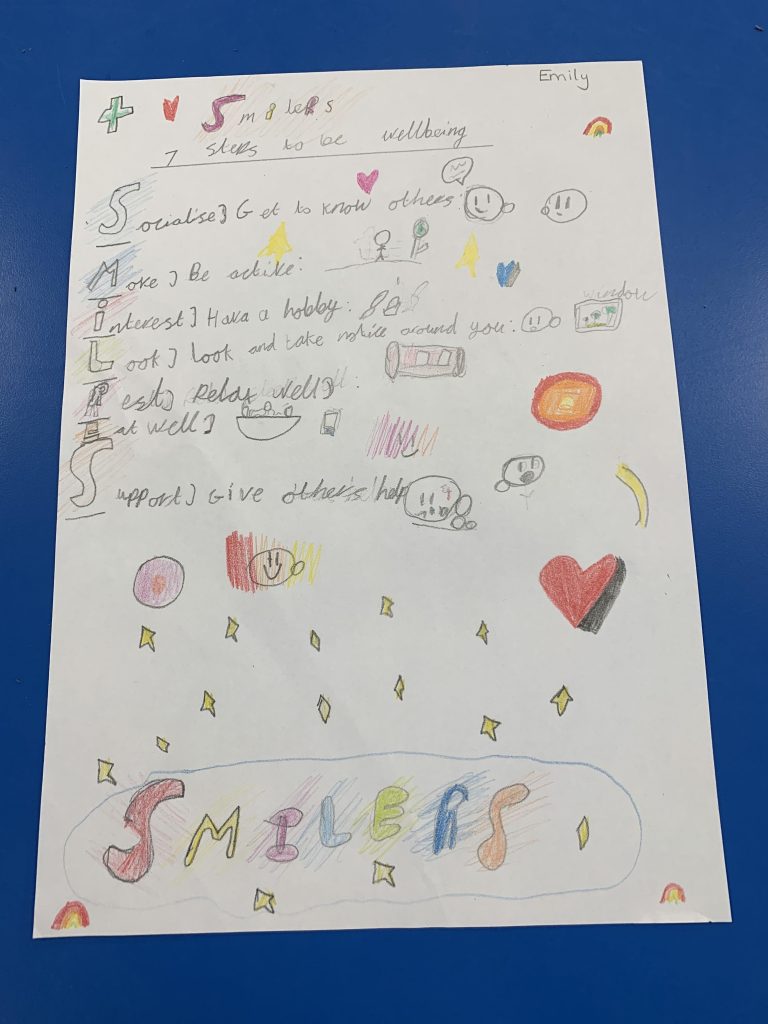 Emily
Smilers
7 steps to be wellbeing
Socialise] Get to know others:
Move] Be active:
window
interest] Have a hobby:
Look] look and take notice around you:
Rest] Relax well]
Eat well]
Support] Give others help
SMILERS